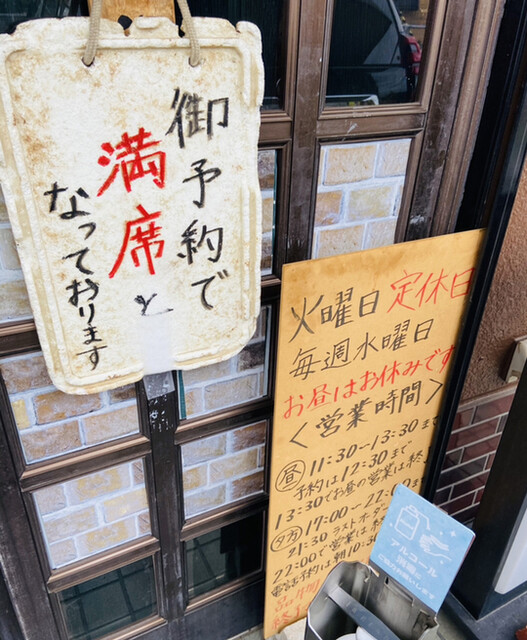 御予約で
満席と
なっております
火曜日定休日
毎週水曜日
お昼はお休みです
<営業時間>
昼 11:30-13:30まで
予約は12:30まで
13:30でお昼の営業は終
夕方 17:00-22:00
21:30ラストオーダー
22:00で営業は終
電話予約は朝10:30
アルコール
消毒に
ご協力お願いします